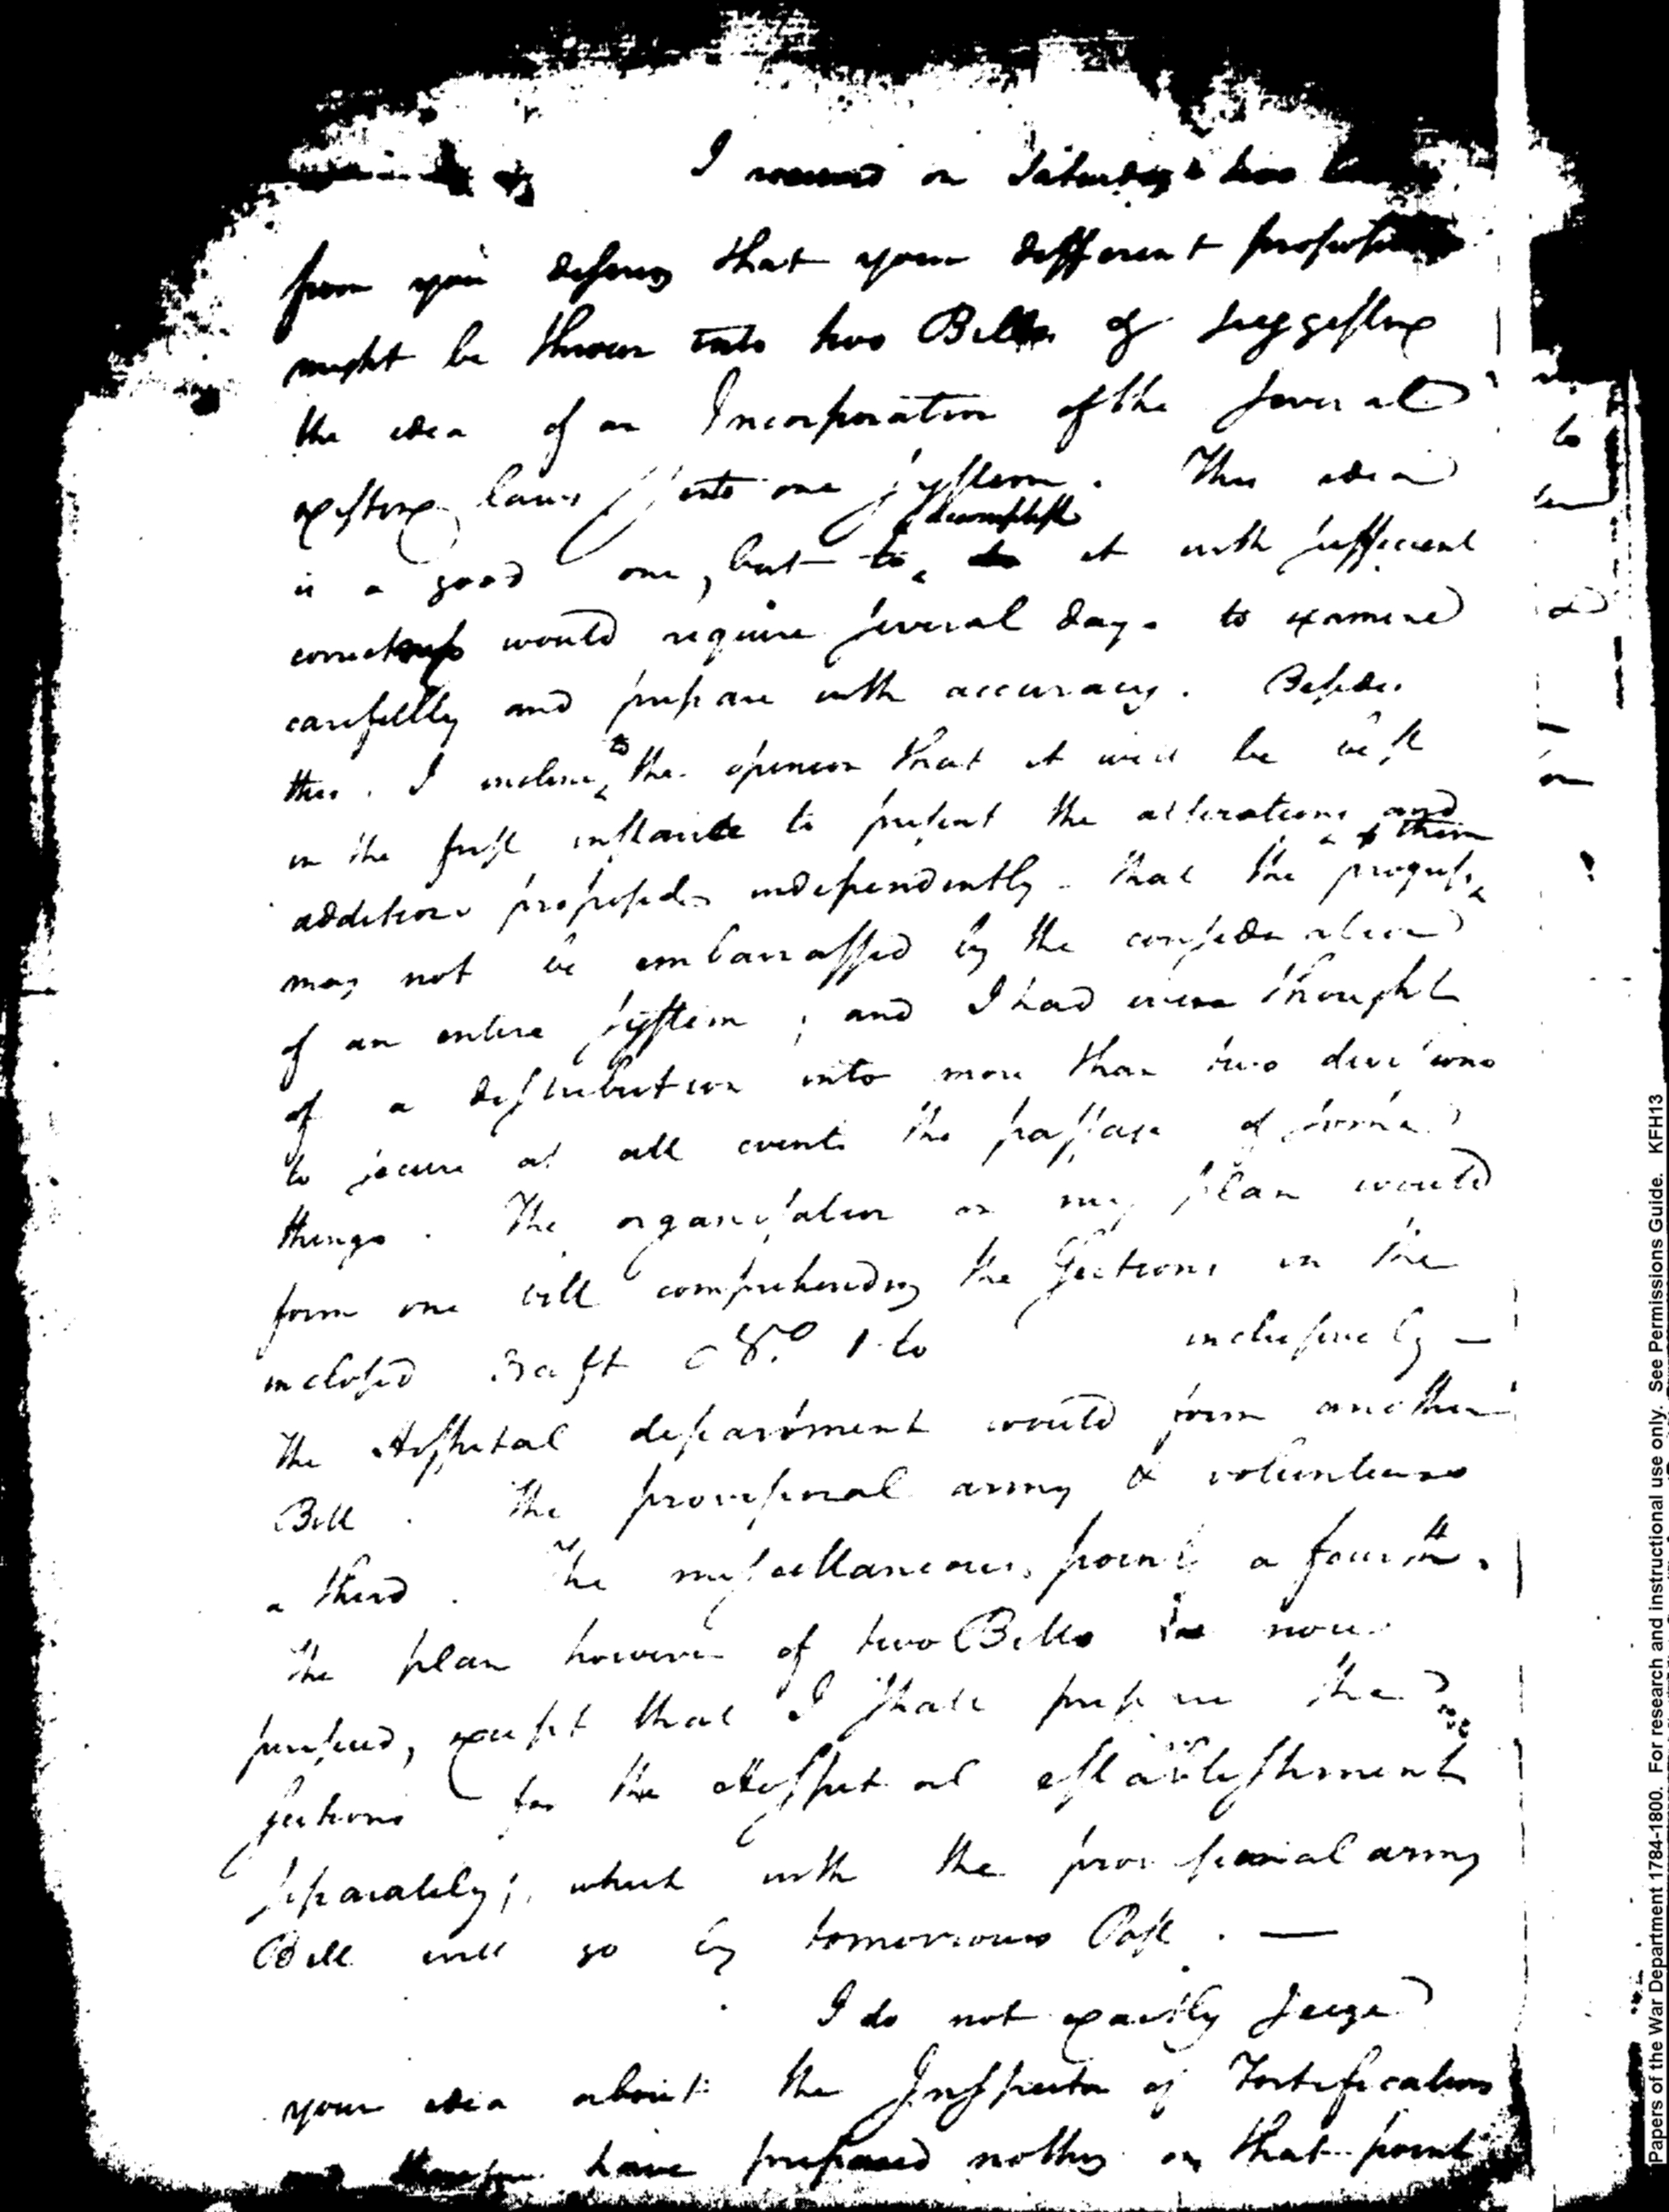 I received on Saturday two
from you desiring that your different
might be thrown into two Bills & suggesting
the idea of an Incorporation of the several
existing laws into one system. This idea
accomplish
is a good one, but to it with sufficient
correctness would require several days to examine
carefully and prepare with accuracy. Besides
this. I incline to the opinion that it will be best
in the first instance to present the alterations and
additions proposed independently that the progress of them
may not be embarrassed by the consideration
of an entire system; and I had even thought
of a distribution into more than two divisions
to secure at all events the passage of some
things. The organisation on my plan would
form one bill comprehending the Sections in the
inclosed Draft No. 1 to inclusively —
The Hospital department would form another
Bill. The provisional army & volunteers
a third. The miscellaneous points a fourth.
The plan however of two Bills is now
pursued, except that I shall prepare the
sections for the Hospital establishment
separately; which with the provisional army
Bill will go by tomorrows Post. —
I do not exactly seize
your idea about the Inspector of Fortifications
and therefore have prepared nothing on that point
to
Papers of the War Department 1784-1800. For research and instructional use only. See Permissions Guide. KFH13